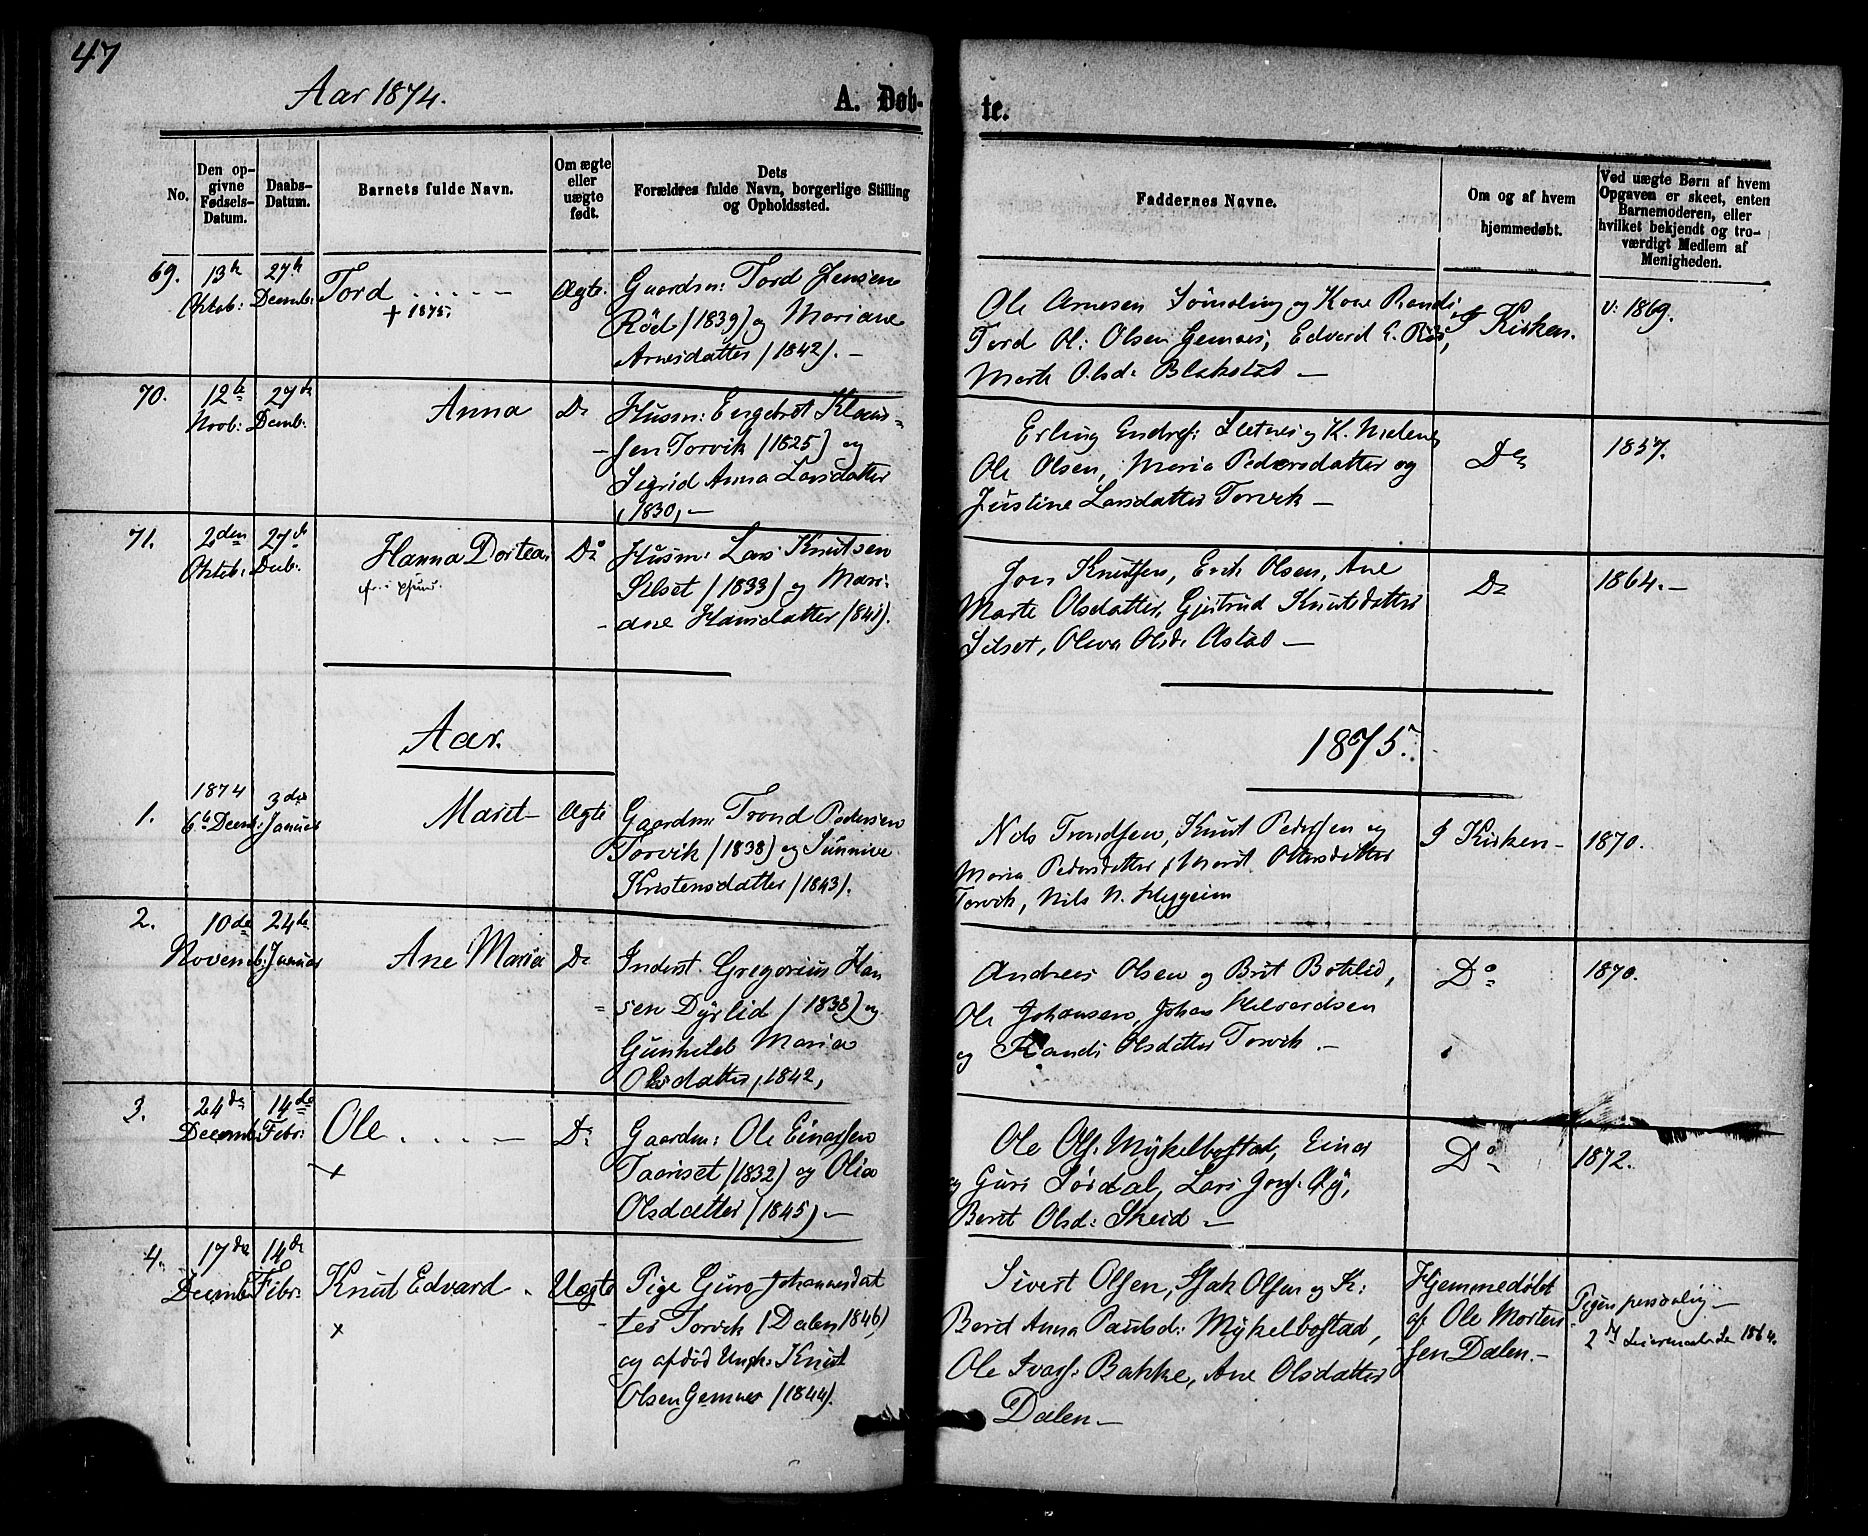 47
Aar 1874.
A. Døb-
te.
No.
Den op-
givne
Fødsels-
Datum.
Daabs-
Datum.
Barnets fulde Navn.
Om ægte
eller
uægte
født.
Dets
Forældres fulde Navn, borgerlige Stilling
og Opholdssted.
Faddernes Navne.
Om og af hvem
hjemmedøbt.
Ved uægte Børn af hvem
Opgaven er skeet, enten
Barnemoderen, eller
hvilket bekjendt og tro-
værdigt Medlem af
Menigheden.
69.
13de
Oktob:
27de
Decemb:
Tord
+ 1875.
Ægte.
Gaardm: Tord Jensen
Röd (1839) og Mariane
Arnesdatter (1842). –
Ole Arnesen og Kone Randi,
Tord Ol: Olsen Gemnes, Edvard E. Röd,
Marte Olsd: Blakstad –
I Kirken.
v: 1869.
70.
12te
Novb:
27de
Decmb:
Anna
Do
Husm: Engebret Klaus-
sen Torvik (1825) og
Sigrid Anna Larsdatter
(1830) –
Erling Endres: Sletnes og K.
Ole Olsen, Maria Pedersdatter og
Justine Larsdatter Torvik –
Do
1857.
71.
2den
Oktob:
27de
Decb:
Hanna Dortea
Do
Husm: Lars Knutsen
Silset (1833) og Mari-
ane Hansdatter (1841).
Jon Knutsen, Erik Olsen, Ane
Marte Olsdatter, Gjertrud Knutsdatter
Silset, Oleva Olsd: Astad –
Do
1864. –
Aar.
1875.
1.
1874
6te Decmb:
3die
Januar
Marit
Ægte
Gaardm: Trond Pedersen
Torvik (1838) og Sunnive
Kristensdatter (1843).
Nils Trondsen, Knut Pedersen og
Maria Pedersdatter, Marit Ottersdatter
Torvik, Nils N. Heggeim
I Kirken –
1870.
2.
10de
Novemb:
24de
Januar
Ane Maria
Do
Inderst. Gregorius Han
sen Dyrlid (1838) og
Gunhild Maria
Olsdatter, 1842,
Andreas Olsen og Brit Botelid,
Ole Johansen, Johan Halvordsen
og Randi Olsdatter Torvik. –
Do
1870.
3.
24de
Decemb:
14de
Febr:
Ole
+
Do
Gaardm: Ole Einarsen
(1832) og Olia
Olsdatter (1845) –
Ole Ols: Mykelbostad, Einar
og Guri Sördal, Lars Jons: Öy,
Berit Olsd: Skeid –
Do
1872.
4.
17de
Decemb
14de
Febr:
Knut Edvard
x
Uægte
Pige Guro Johannesdat
ter Torvik (Dalen 1846)
og afdöd Ungk: Knut
Olsen Gemnes (1844).
Sivert Olsen, Isak Olsen og K:
Berit Anna Paulsd: Mykelbostad,
Ole Ivars: Bakke, Ane Olsdatter
Dalen –
Hjemmedöbt
af Ole Morten
sen Dalen. –
Pigen personlig –
1864.